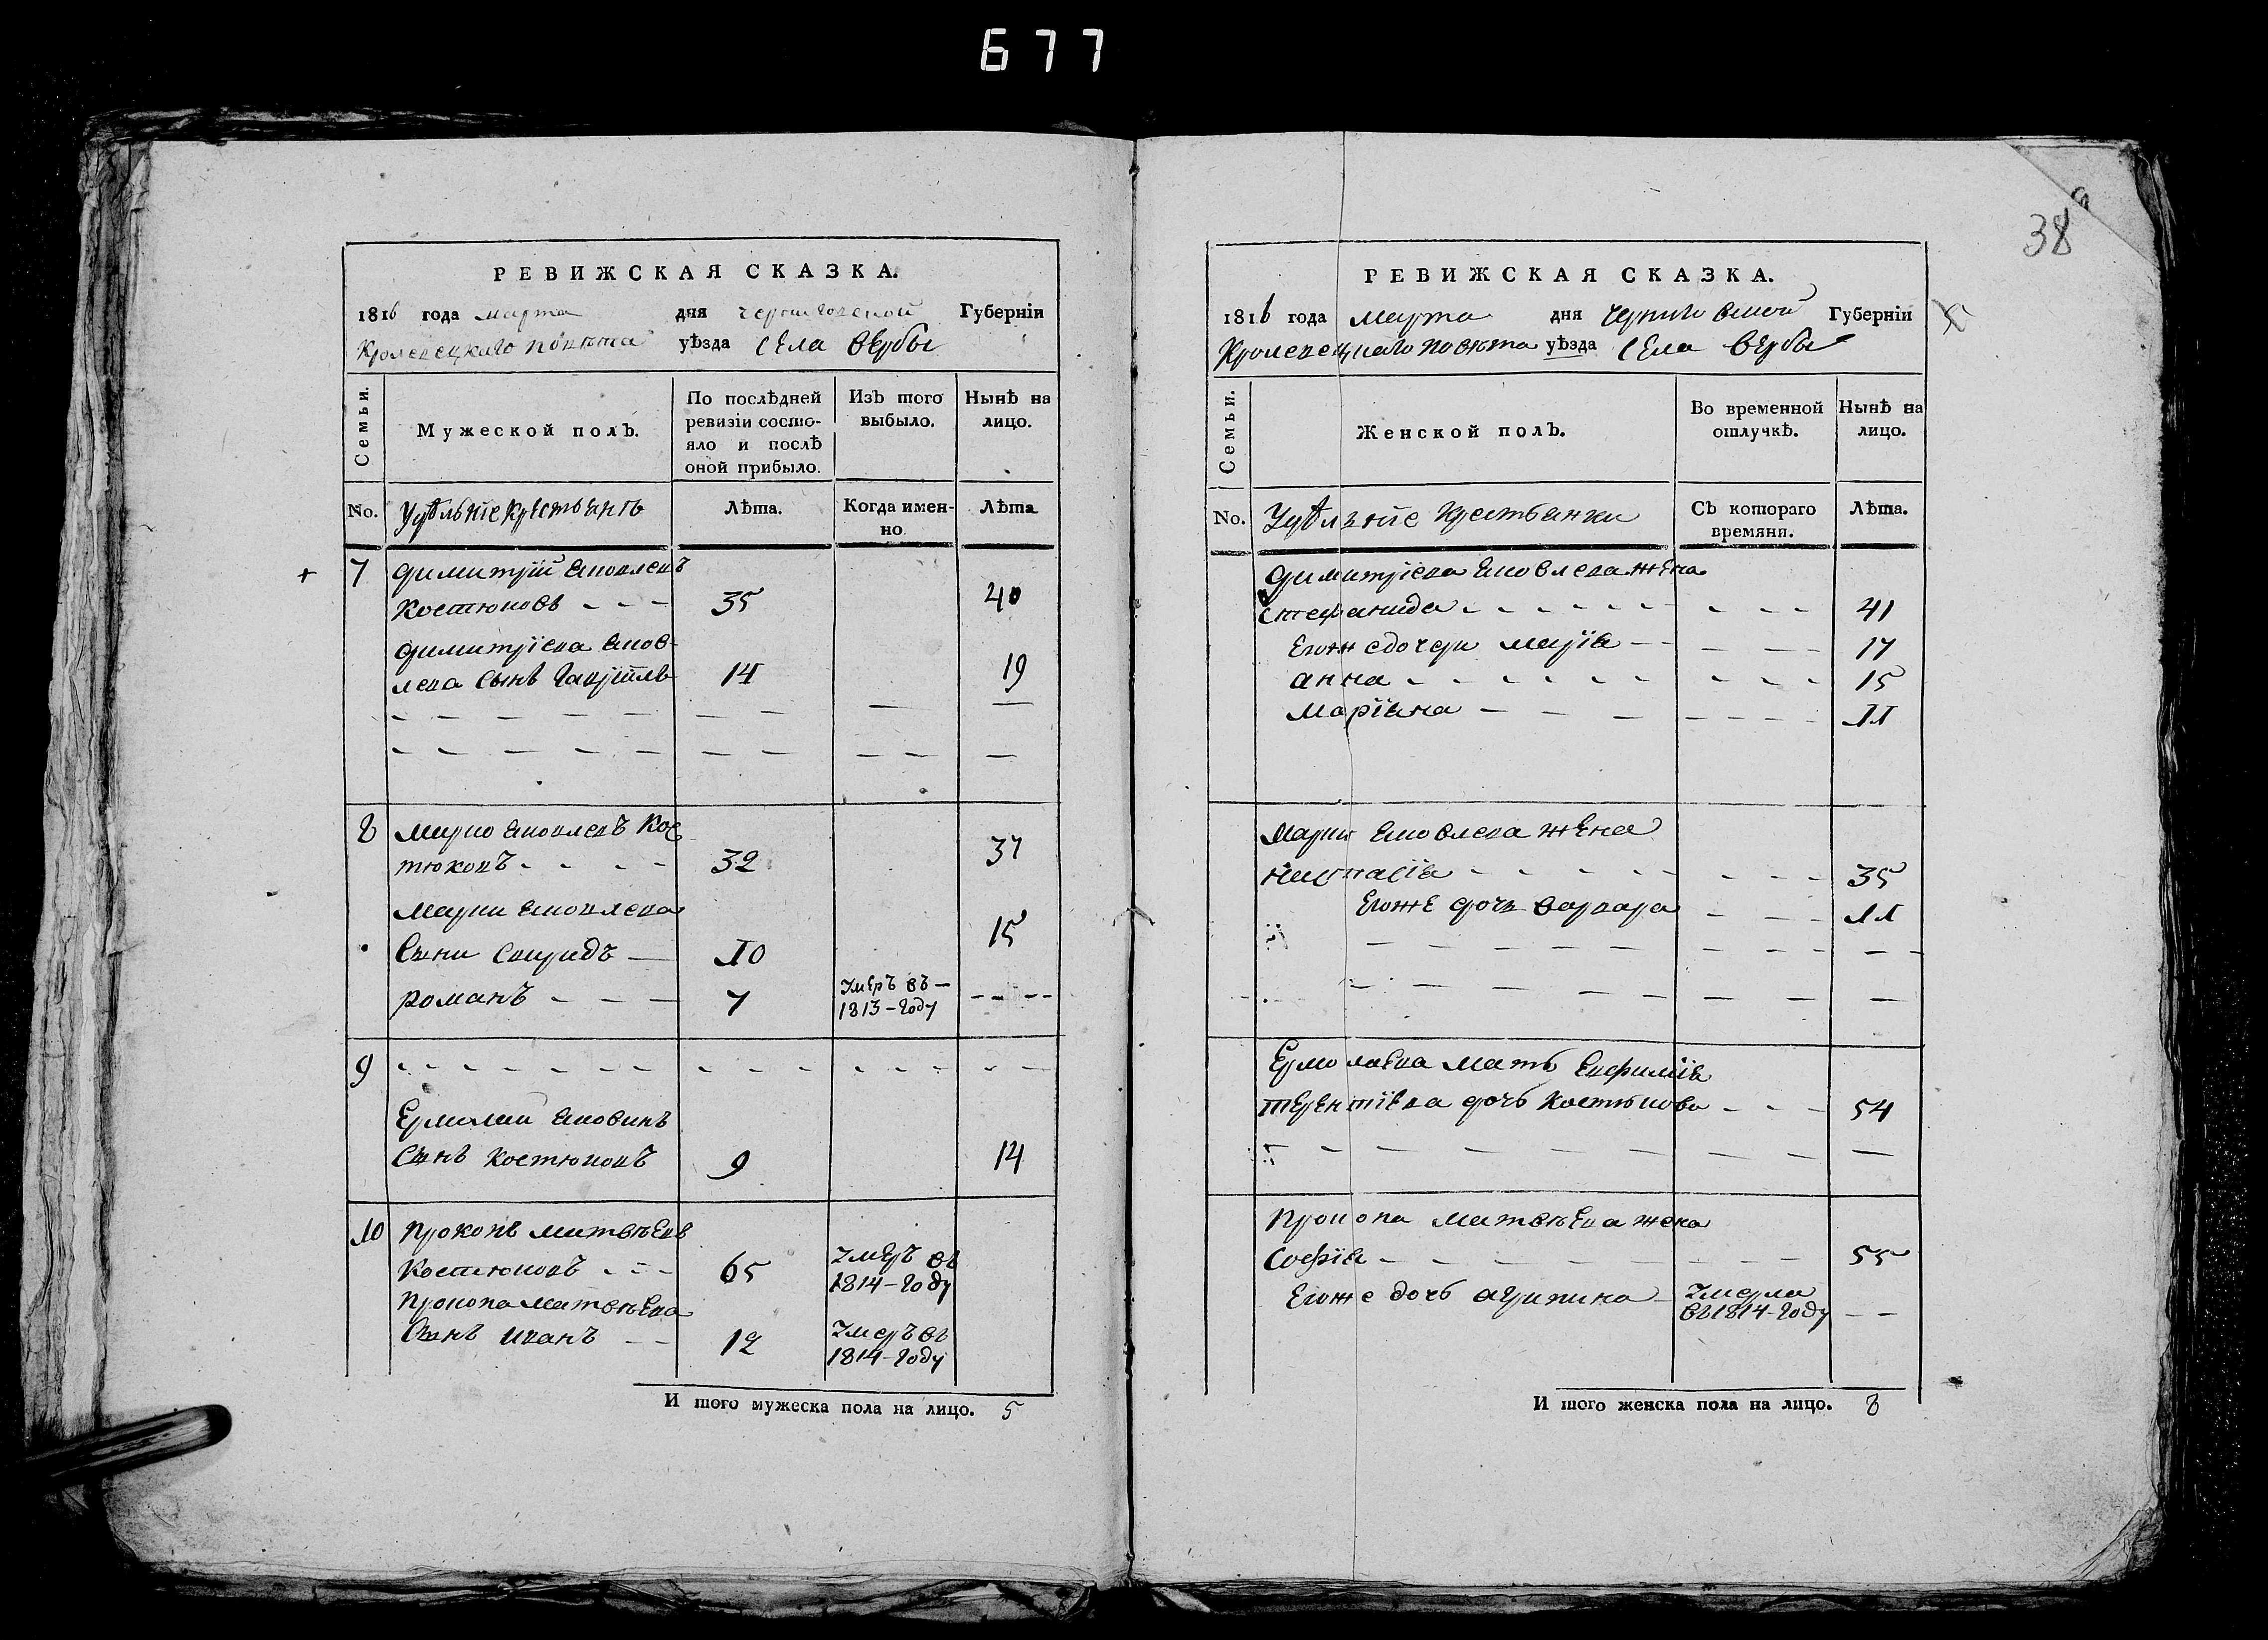 677
38
РЕВИЖСКАЯ СКАЗКА.
1816 года марта дня Черниговской Губерніи
Кролевецкаго повѣта уѣзда села Вербы
Семьи.
Мужеской полъ.
По послѣдней
ревизіи состо-
яло и послѣ
оной прибыло.
Изъ того
выбыло.
Нынѣ на
лицо.
No.
Удѣльніе крестьянъ
Лѣта.
Когда имен-
но.
Лѣта
7 Димитрій Яковлевъ
Костюковъ - - - 35 40
Димитріева Яков-
лева сынъ Гавріилъ 14 19
8 Марко Яковлевъ Кос
тюковъ - - - - 32 37
Марки Яковлева
Сыни Спиридъ — 10 15
романъ - - - 7 умеръ въ - - - -
1813-году
9 - - - - - - -
Ермолай Яковинъ
Сынъ Костюковъ 9 14
10 Прокопъ Матвѣевъ
Костюковъ - - - 65 умеръ въ
1814-году
Прокопа Матвѣева
Сынъ Иванъ - - 12 умеръ въ
1814-году
И того мужеска пола на лицо. 5
РЕВИЖСКАЯ СКАЗКА.
1816 года марта дня Черниговской Губерніи
Кролевецкаго повѣта уѣзда села Вербы
Семьи.
Женской полъ.
Во временной
отлучкѣ.
Нынѣ на
лицо.
No.
Удѣлніе крестьянки
Съ котораго
времяни.
Лѣта.
Димитріева Яковлева жена
Стефанида - - - - - - - - 41
Егоже дочери Марія - - - - - 17
анна - - - - - - - - - 15
Маріяна - - - - - - - 11
Марки Яковлева жена
- - - - - - - - 35
Егоже дочь Варвара - - - 11
Ермолаева мать Евфимія
терентіева дочь Костюкова - - - 54
Прокопа Матвѣева жена
Софія - - - - - - - - 55
Егоже дочь агрипина - умерла - -
въ 1814-году
И того женска пола на лицо. 8